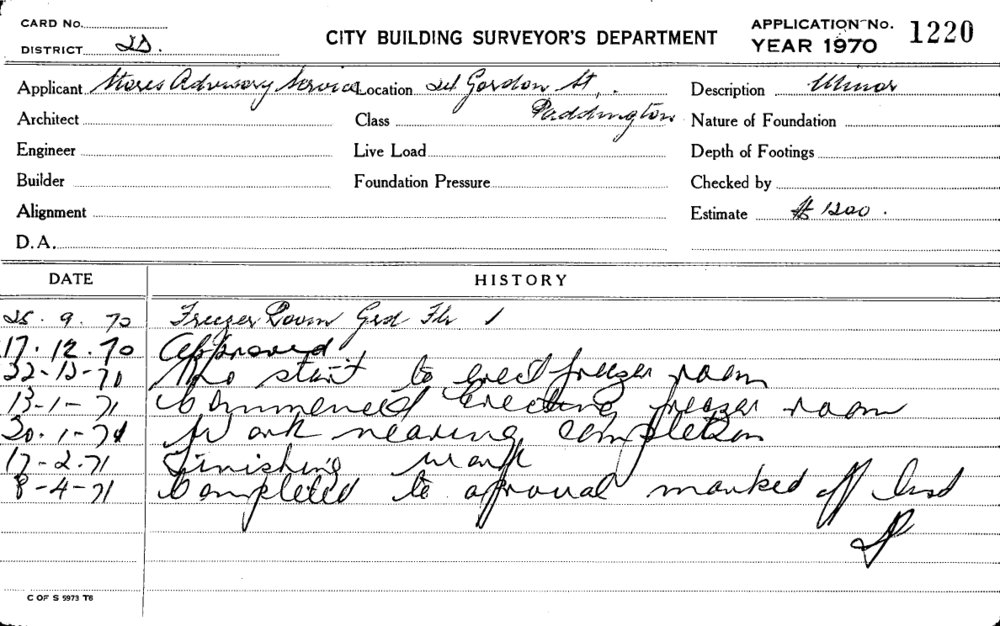 CARD No.
DISTRICT 2S.
CITY BUILDING SURVEYOR'S DEPARTMENT
APPLICATION No. 1220
YEAR 1970
Applicant Stores Advisory Service Location 24 Gordon St,. Description Minor
Architect Class Paddington Nature of Foundation
Engineer Live Load Depth of Footings
Builder Foundation Pressure Checked by
Alignment Estimate $1200.
D.A.
DATE HISTORY
25. 9. 70 Freezer Room Grd Flr 1
17.12.70 Approved
22-12-70 No start to erect freezer room
13-1-71 Commenced erecting freezer room
20.1-71 Work nearing completion
17-2.71 Finishing work
8-4-71 Completed to aproval marked off list
C OF S 5973 T6